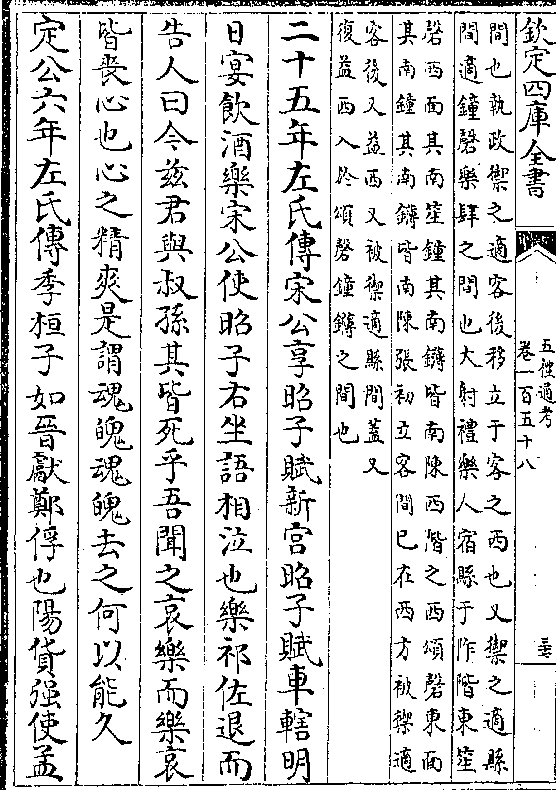 欽定四庫全書
五禮通考
卷一百五十八
間也執政禦之適客後移立于客之西也又禦之適縣
間適鐘磬樂肆之間也大射禮樂人宿縣于阼階東笙
磬西面其南笙鐘其南鑮皆南陳西階之西頌磬東面
其南鐘其南鑮皆南陳張初立客間已在西方被禦適
客後又益西又被禦適縣間蓋又
復益西入於頌磬鐘鑮之間也
二十五年左氏傳宋公享昭子賦新宮昭子賦車轄明
日宴飲酒樂宋公使昭子右坐語相泣也樂祁佐退而
告人曰今茲君與叔孫其皆死乎吾聞之哀樂而樂哀
皆喪心也心之精爽是謂魂魄魂魄去之何以能久
定公六年左氏傳季桓子如晉獻鄭俘也陽貨强使孟